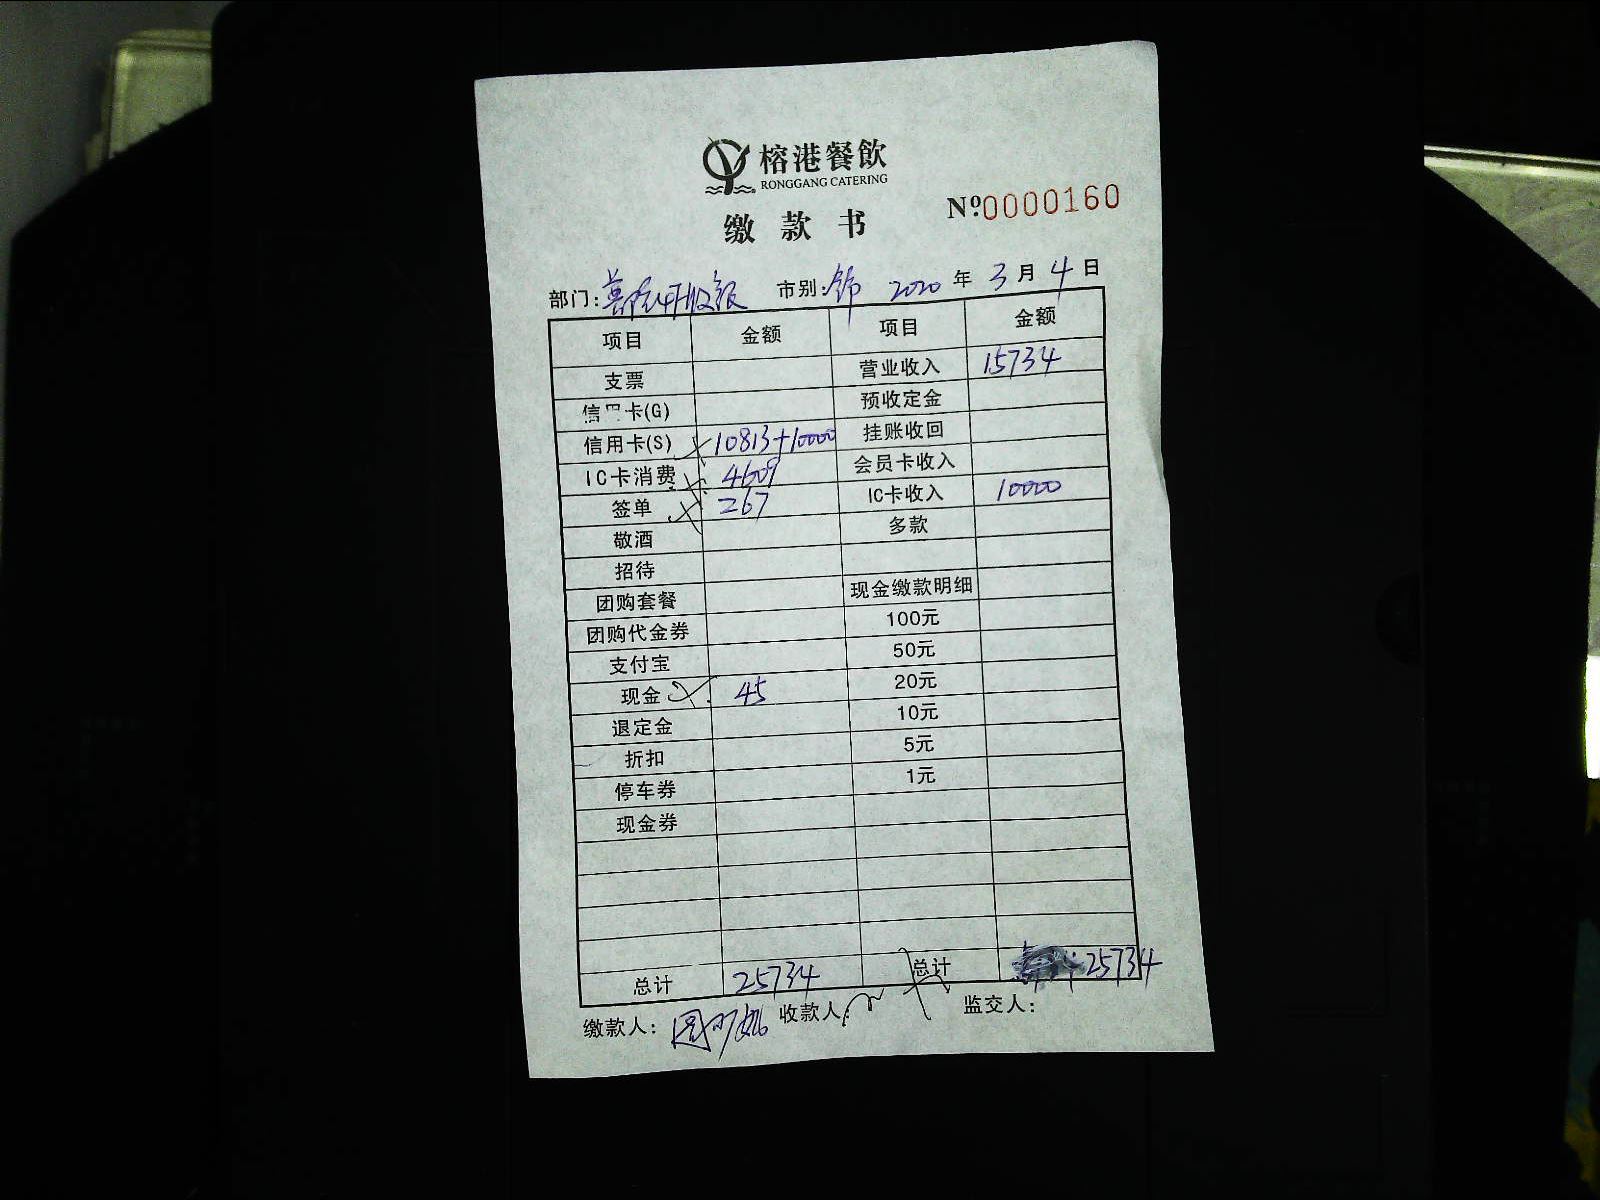 榕港餐飲
RONGGANG CATERING
缴款书
Nº.0000160
部门: 市别: 2020年3月4日
项目 金额 项目 金额
支票 营业收入 15734
信用卡(G) 预收定金
信用卡(S) 10813+10000 挂账收回
IC卡消费 4609 会员卡收入
签单 267 IC卡收入 10000
敬酒 多款
招待
团购套餐 现金缴款明细
团购代金券 100元
支付宝 50元
现金 45 20元
退定金 10元
折扣 5元
停车券 1元
现金券
总计 25734 总计 25734
缴款人: 收款人: 监交人: